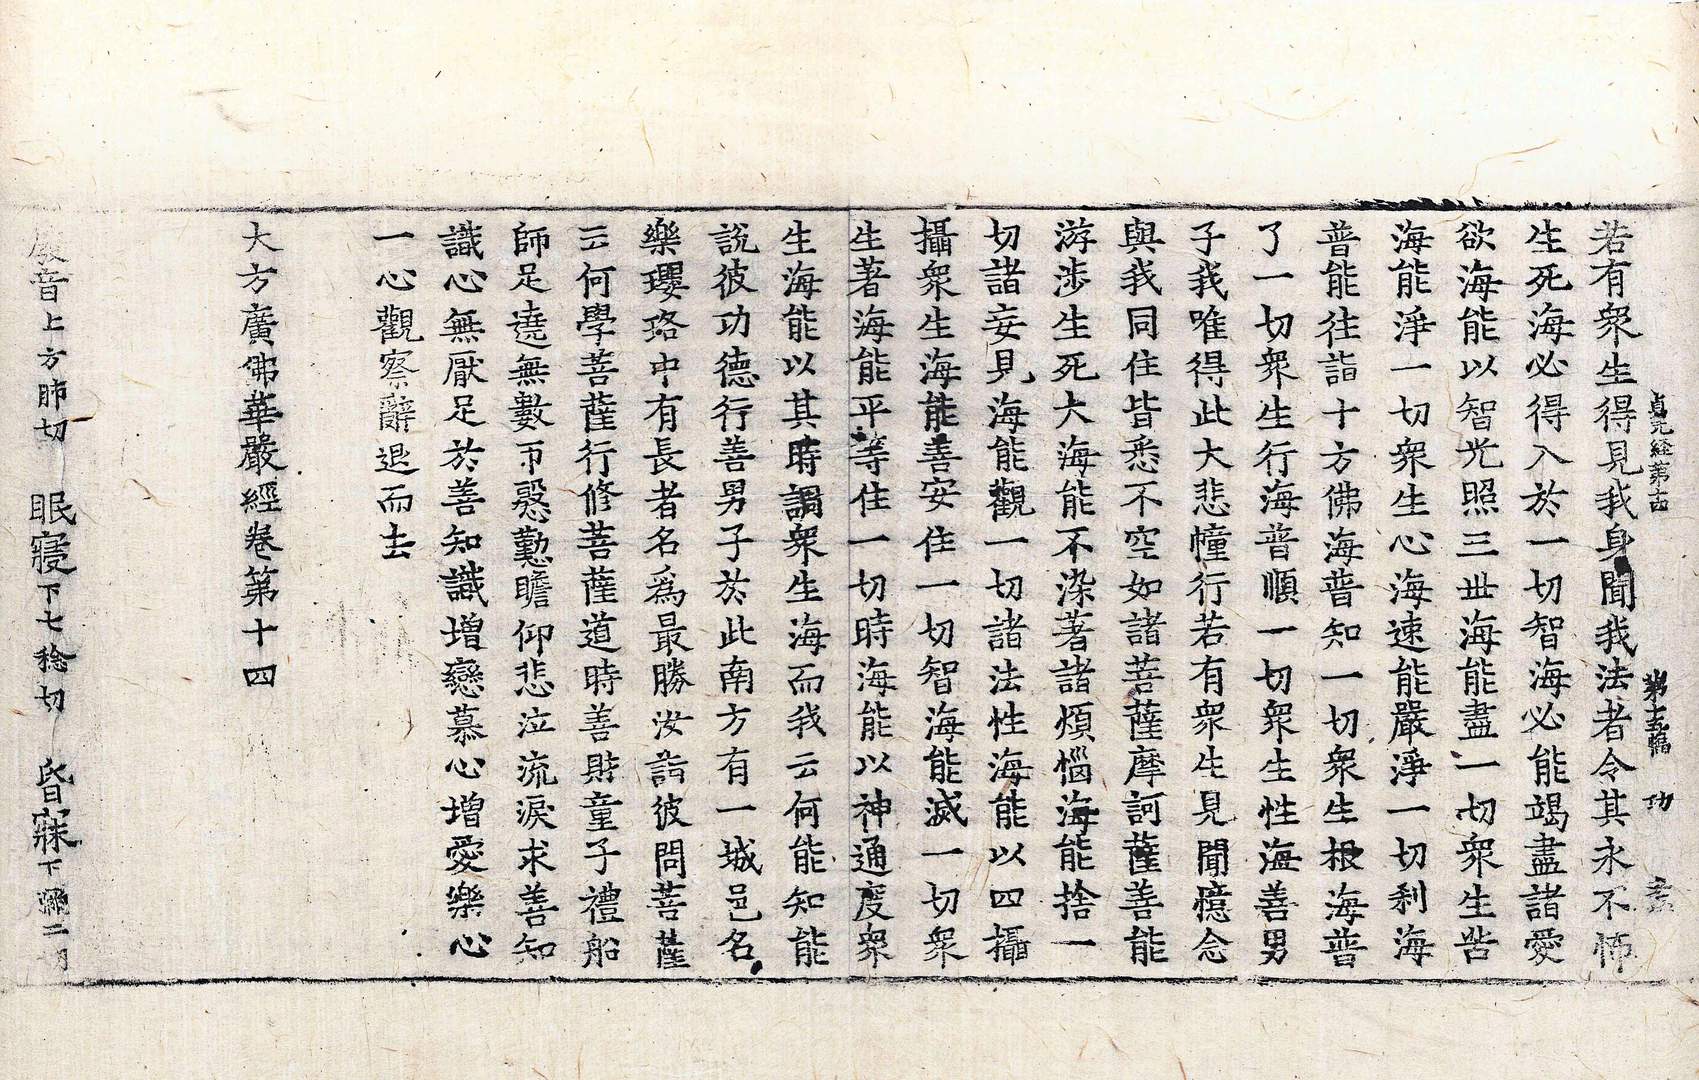 貞元経第十四　第十五幅　功
若有衆生得見我身聞我法者令其永不怖
生死海必得入於一切智海必能竭盡諸愛
欲海能以智光照三世海能盡一切衆生苦
海能淨一切衆生心海速能嚴淨一切刹海
普能往詣十方佛海普知一切衆生根海普
了一切衆生行海普順一切衆生性海善男
子我唯得此大悲幢行若有衆生見聞憶念
與我同住皆悉不空如諸菩薩摩訶薩善能
游涉生死大海能不染著諸煩惱海能捨一
切諸妄見海能觀一切諸法性海能以四攝
攝衆生海能善安住一切智海能滅一切衆
生著海能平等住一切時海能以神通度衆
生海能以其時調衆生海而我云何能知能
說彼功德行善男子於此南方有一城邑名
樂瓔珞中有長者名爲最勝汝詣彼問菩薩
云何學菩薩行修菩薩道時善財童子禮船
師足遶無數帀慇懃瞻仰悲泣流淚求善知
識心無厭足於善知識增戀慕心增愛樂心
一心觀察辭退而去
大方廣佛華嚴經卷第十四
音上方肺切　眠寢下七稔切　昏寐下彌二切